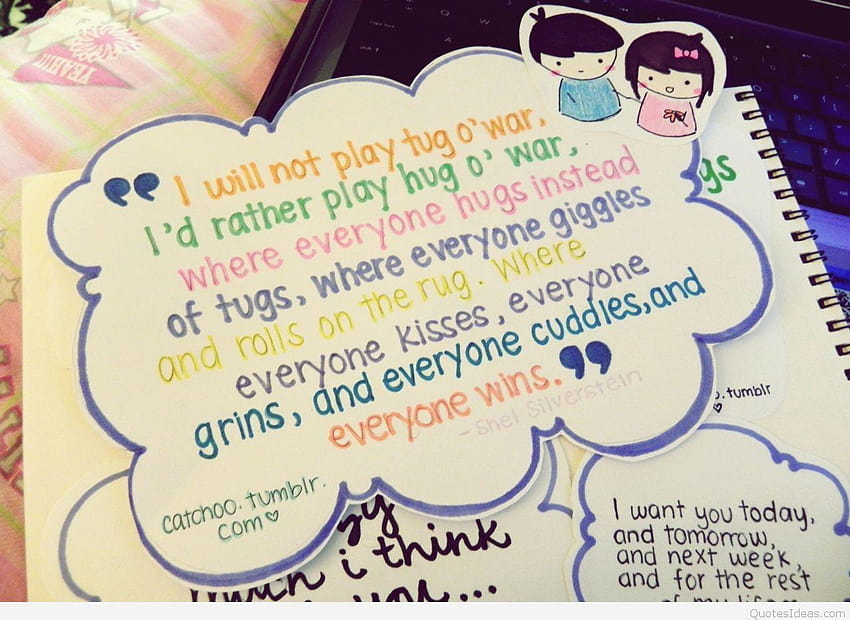 “ I will not play tug o' war,
I'd rather play hug o' war,
where everyone hugs instead
of tugs, where everyone giggles
and rolls on the rug. Where
everyone kisses, everyone
grins, and everyone cuddles, and
everyone wins. ”
- Shel Silverstein
catchoo.tumblr.
com ♡
gs
.tumblr
♡
much i think
you...
I want you today,
and tomorrow,
and next week,
and for the rest
of my life
QuotesIdeas.com